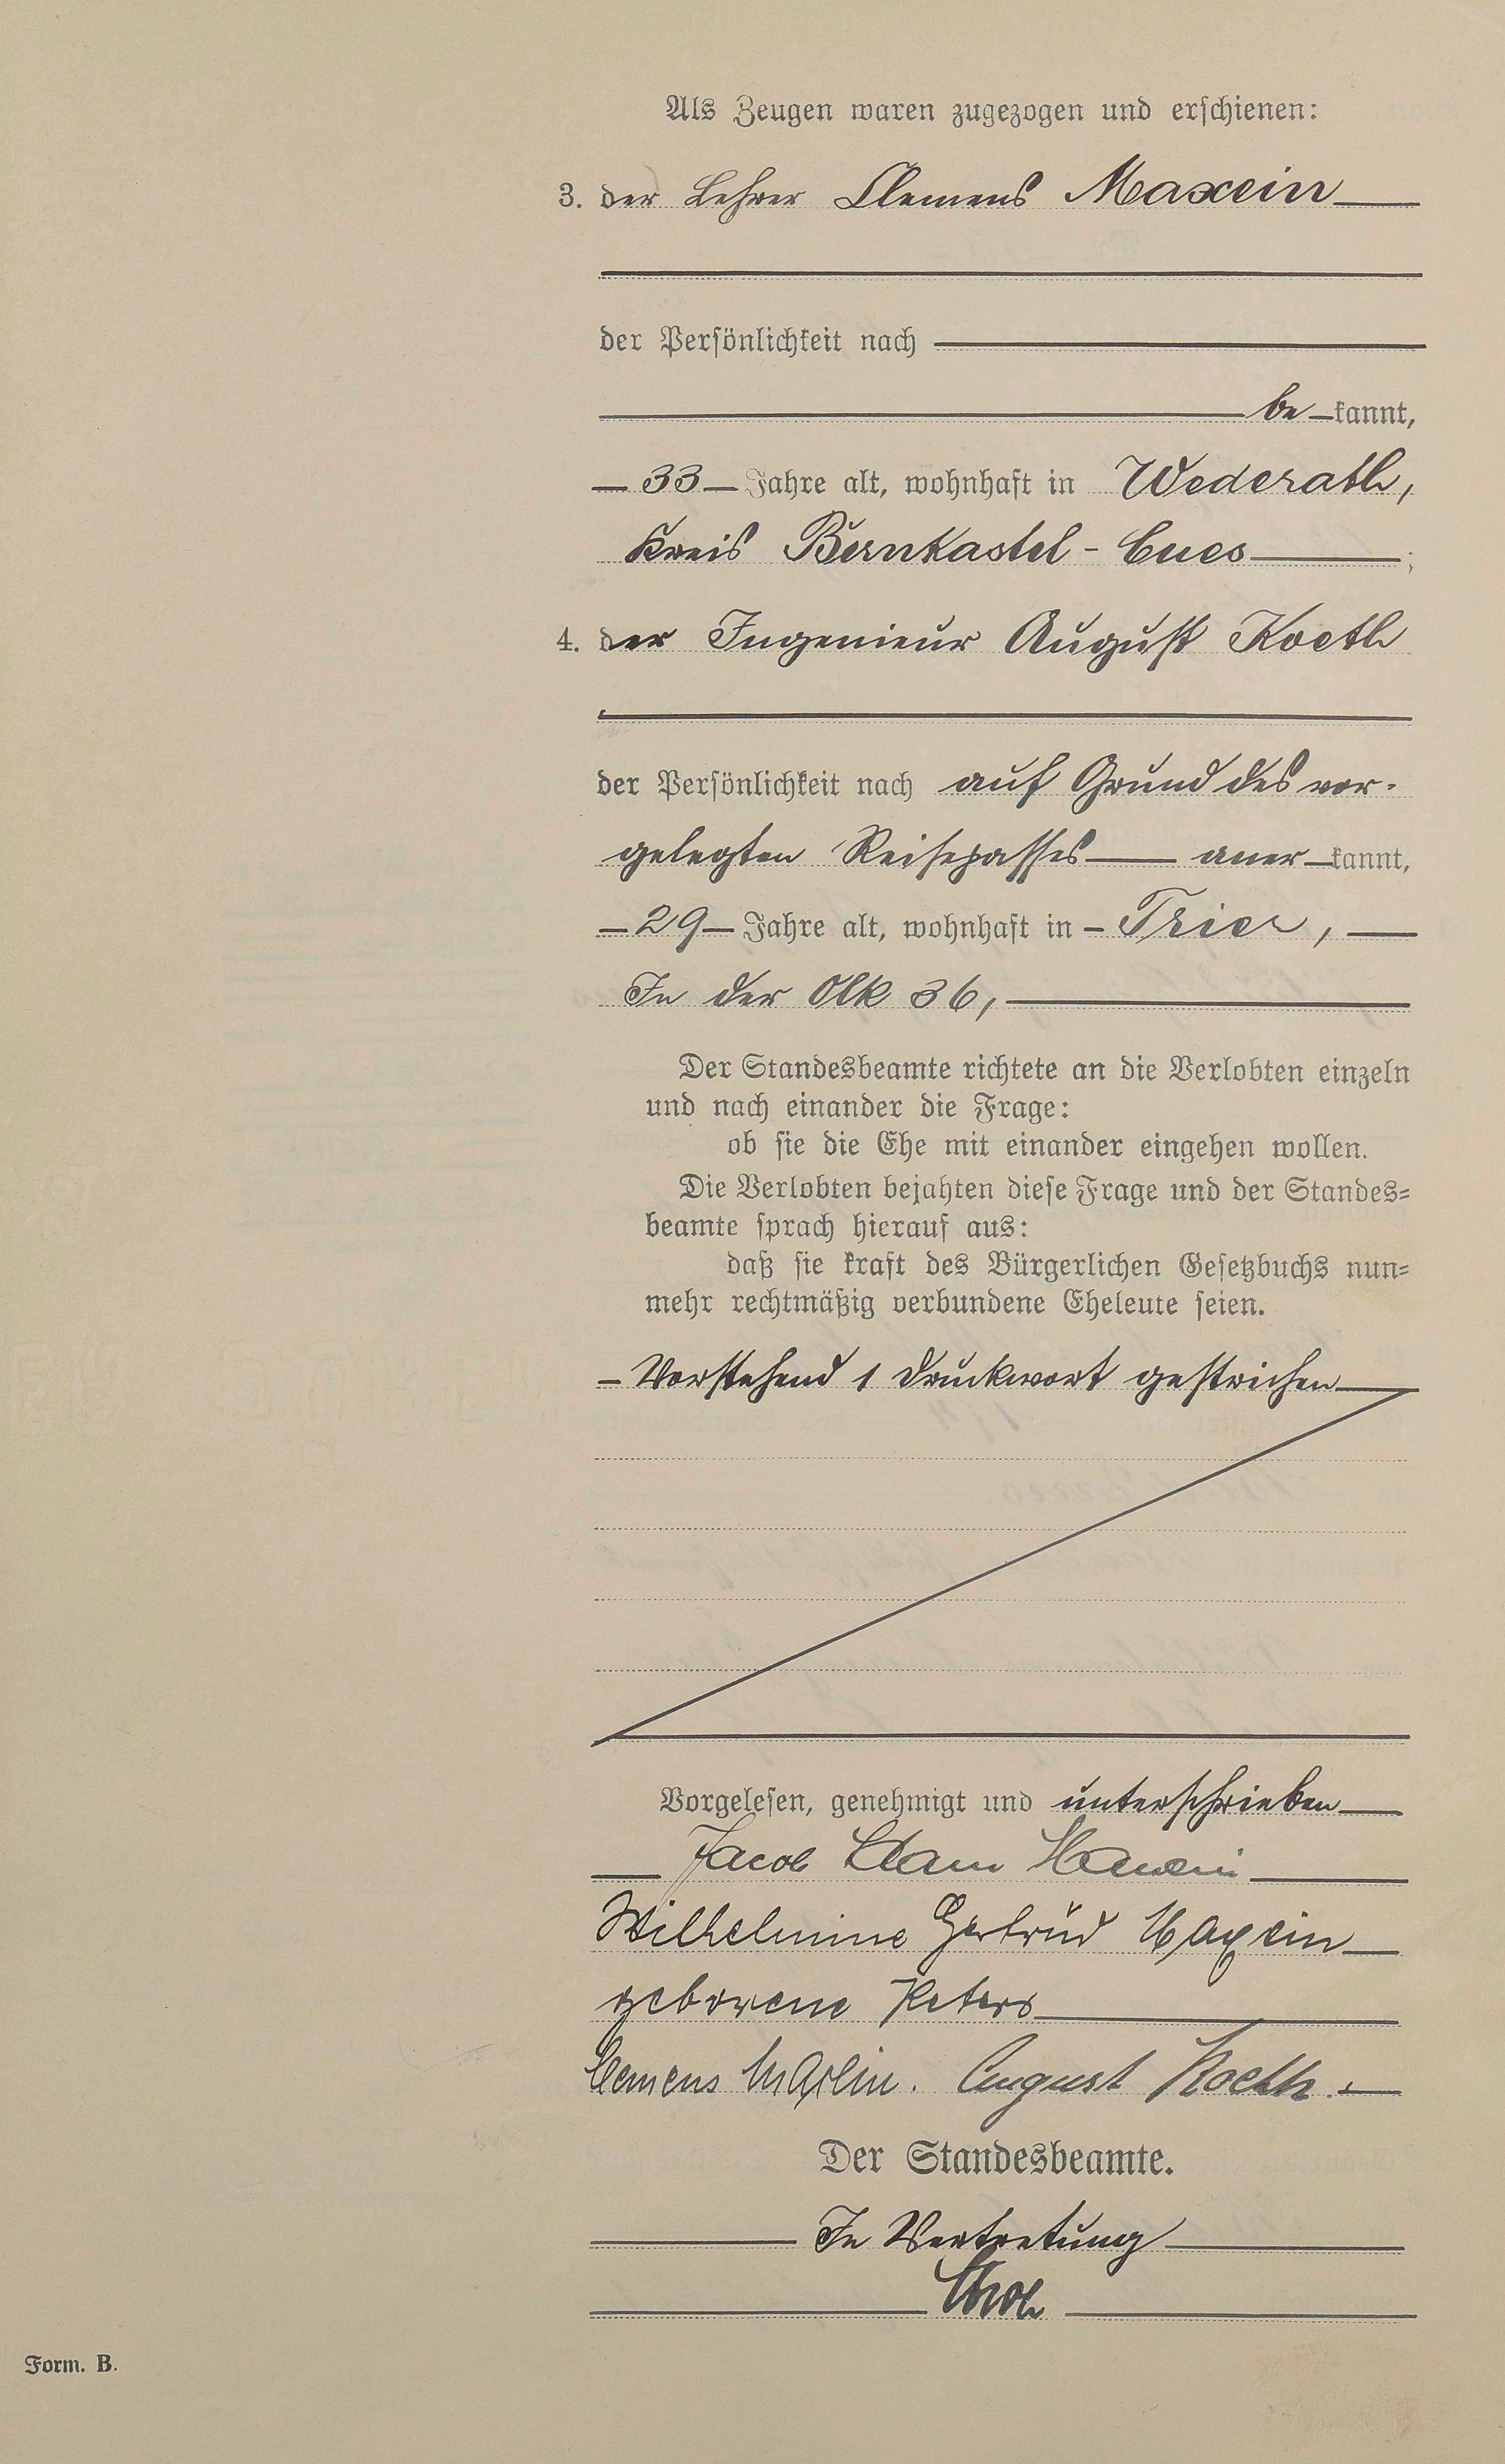 Als Zeugen waren zugezogen und erschienen:
3. der Lehrer Clemens Maxein
der Persönlichkeit nach
be kannt,
33 Jahre alt, wohnhaft in Wederath,
Kreis Bernkastel-Cues ;
4. der Ingenieur August Koeth
der Persönlichkeit nach auf Grund des vor-
gelegten Reisepasses aner kannt,
29 Jahre alt, wohnhaft in Trier,
In der Olk 36,
Der Standesbeamte richtete an die Verlobten einzeln
und nach einander die Frage:
ob sie die Ehe mit einander eingehen wollen.
Die Verlobten bejahten diese Frage und der Standes=
beamte sprach hierauf aus:
daß sie kraft des Bürgerlichen Gesetzbuchs nun=
mehr rechtmäßig verbundene Eheleute seien.
Vorstehend 1 Druckwort gestrichen
Vorgelesen, genehmigt und unterschrieben
Jacob Maxein
Wilhelmine Gertrud Maxein
geborene Peters
Clemens Maxein. August Koeth.
Der Standesbeamte.
In Vertretung
Form. B.